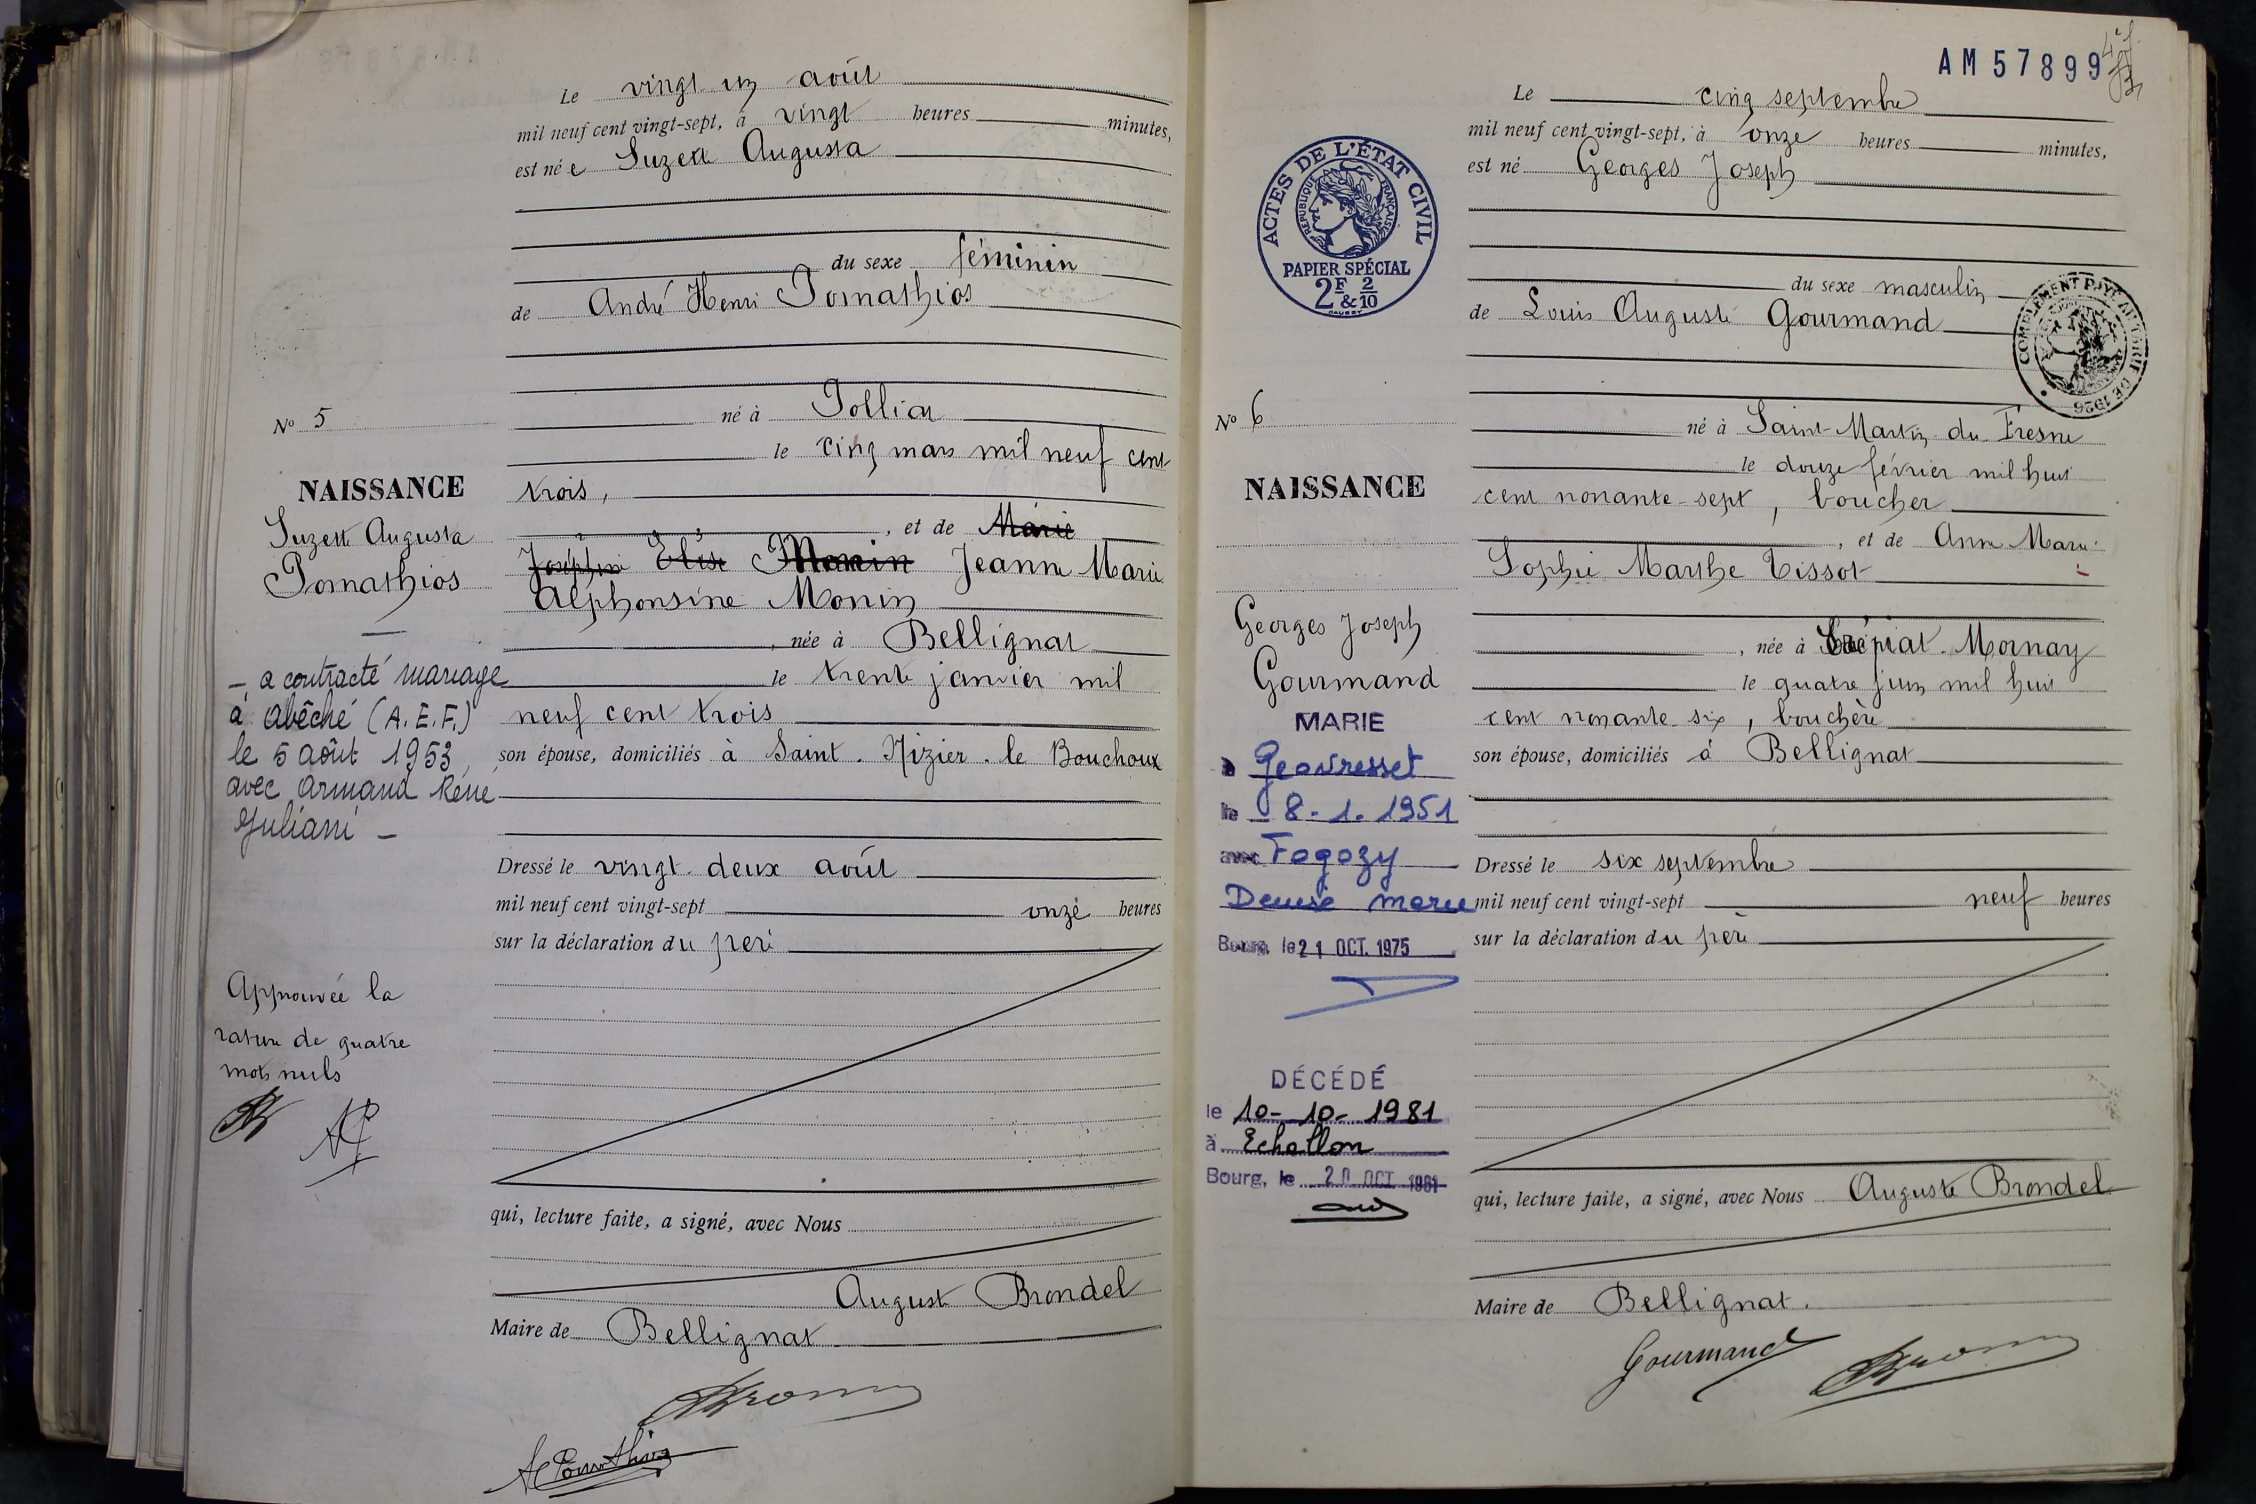 Le vingt un août
mil neuf cent vingt-sept, à vingt heures minutes,
est née Suzette Augusta
du sexe féminin
de André Henri Pomathios
né à Polliat
le cinq mars mil neuf cent
trois,
, et de Marie
Joséphine Elise Monin Jeanne Marie
Alphonsine Monin
, née à Bellignat
le trente janvier mil
neuf cent trois
son épouse, domiciliés à Saint-Nizier-le Bouchoux
Dressé le vingt-deux août
mil neuf cent vingt-sept onze heures
sur la déclaration du père
qui, lecture faite, a signé, avec Nous
Auguste Brondel
Maire de Bellignat
No 5
NAISSANCE
Suzette Augusta
Pomathios
— a contracté mariage
à Abéché (A.E.F.)
le 5 août 1953,
avec Armand René
Juliani —
Approuvée la
rature de quatre
mots nuls
AP
A Pomathios
AM 57899
Le cinq septembre
mil neuf cent vingt-sept, à onze heures minutes,
est né Georges Joseph
du sexe masculin
de Louis Auguste Gourmand
né à Saint-Martin-du Fresne
le douze février mil huit
cent nonante-sept, boucher
, et de Anne Marie
Sophie Marthe Tissot
, née à Mornay
le quatre juin mil huit
cent nonante-six, bouchère
son épouse, domiciliés à Bellignat
Dressé le six septembre
mil neuf cent vingt-sept neuf heures
sur la déclaration du père
qui, lecture faite, a signé, avec Nous Auguste Brondel
Maire de Bellignat.
Gourmand
ACTES DE L'ÉTAT CIVIL
RÉPUBLIQUE FRANÇAISE
PAPIER SPÉCIAL
2F & 2/10
COMPLÉMENT PAYÉ AU TARIF DE 1926
No 6
NAISSANCE
Georges Joseph
Gourmand
MARIE
à Geovresset
le 8.1.1951
avec Fogozy
Denise Marie
Bourg, le 21 OCT. 1975
DÉCÉDÉ
le 10-10-1981
à Echallon
Bourg, le 20 OCT 1981